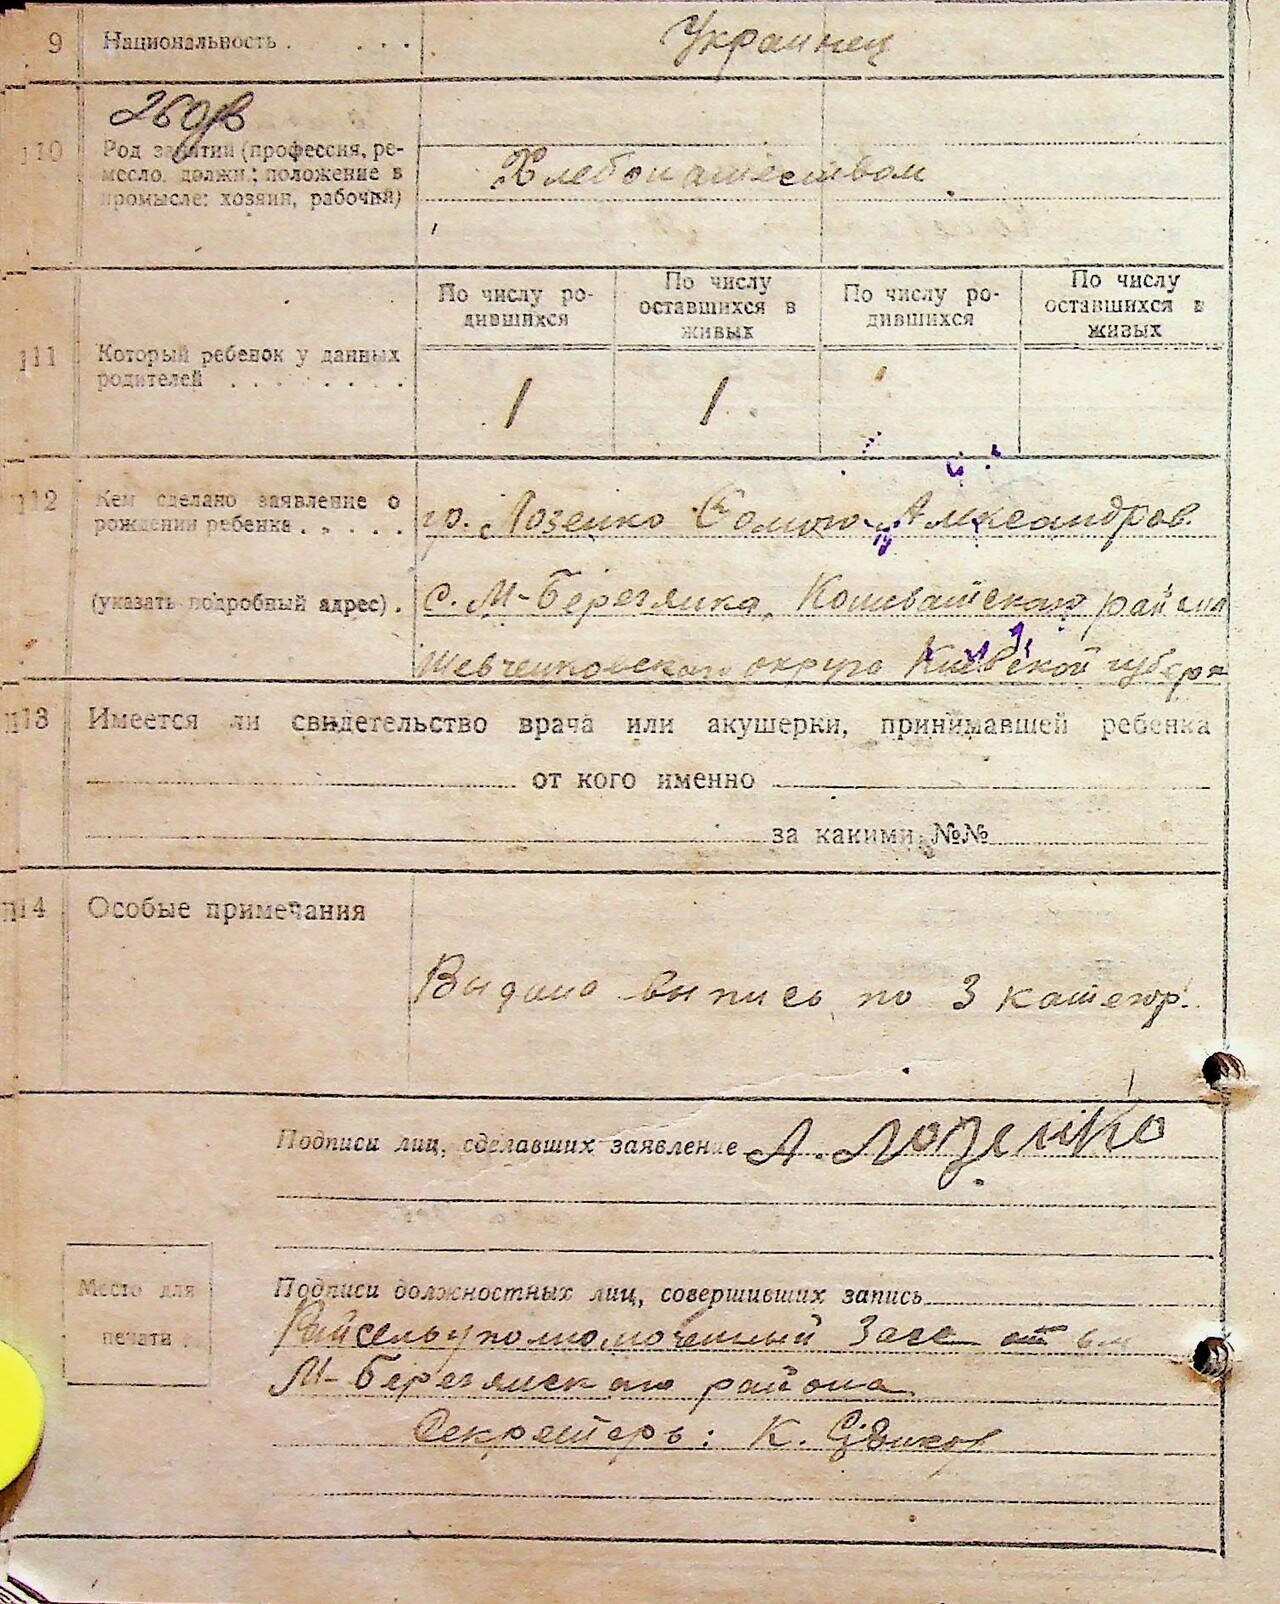 9 Национальность . . . . . Украинец
26 дв
10 Род занятий (профессия, ре-
месло, должн.; положение в
промысле: хозяин, рабочий)
Хлебопашеством
По числу ро-
дившихся
По числу
оставшихся в
живых
По числу ро-
дившихся
По числу
оставшихся в
живых
11 Который ребенок у данных
родителей . . . . . . . .
1 1
12 Кем сделано заявление о
рождении ребенка . . . .
гр. Лозенко Александров.
(указать подробный адрес) .
с. М-Березянка, Кошеватского района
Шевченковского округа Киевской губерн
13 Имеется ли свидетельство врача или акушерки, принимавшей ребенка
от кого именно
за какими №№
14 Особые примечания
Выдана выпись по 3 категор.
Подписи лиц, сделавших заявление А. Лозенко
Место для
печати
Подписи должностных лиц, совершивших запись
Райсельуполномоченный
М-Березянского района
Секретарь: К.